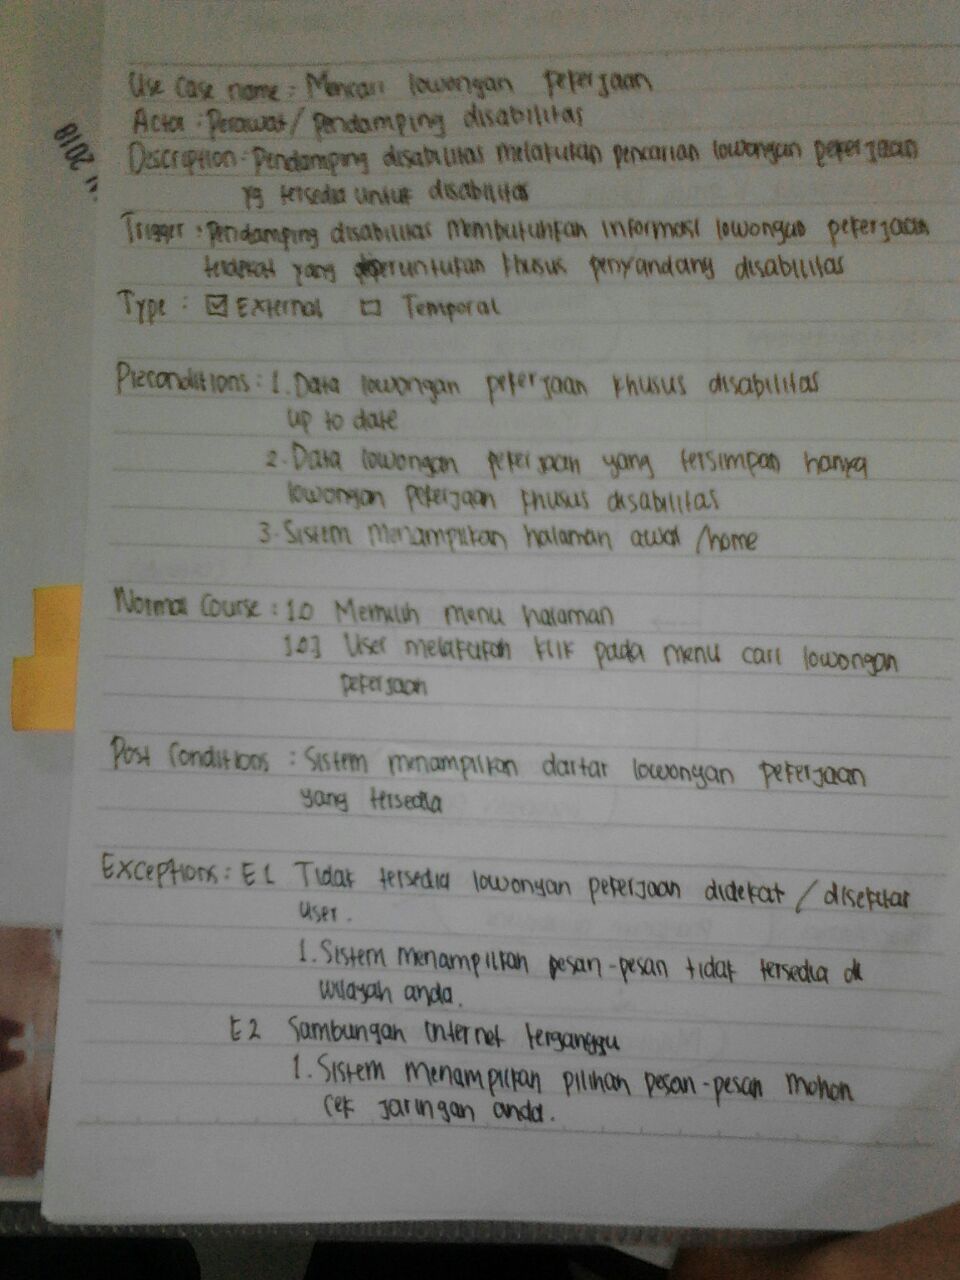 Use Case name : Mencari lowongan pekerjaan
Actor : Perawat / pendamping disabilitas
Description : Pendamping disabilitas melakukan pencarian lowongan pekerjaan
yg tersedia untuk disabilitas
Trigger : Pendamping disabilitas membutuhkan informasi lowongan pekerjaan
terdekat yang diperuntukan khusus penyandang disabilitas
Type : ☑ External ☐ Temporal
Preconditions : 1. Data lowongan pekerjaan khusus disabilitas
up to date
2. Data lowongan pekerjaan yang tersimpan hanya
lowongan pekerjaan khusus disabilitas
3. Sistem menampilkan halaman awal / home
Normal Course : 1.0 Memilih menu halaman
1.0.1 User melakukan klik pada menu cari lowongan
pekerjaan
Post Conditions : Sistem menampilkan daftar lowongan pekerjaan
yang tersedia
Exceptions : E1 Tidak tersedia lowongan pekerjaan didekat / disekitar
user.
1. Sistem menampilkan pesan-pesan tidak tersedia di
wilayah anda.
E2 Sambungan internet terganggu
1. Sistem menampilkan pilihan pesan-pesan mohon
cek jaringan anda.
2018